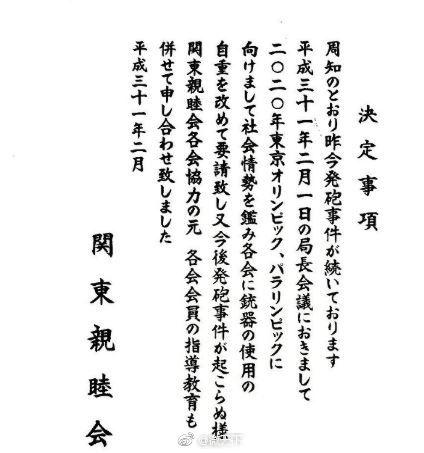 決定事項
周知のとおり昨今発砲事件が続いております
平成三十一年二月一日の局長会議におきまして
二〇二〇年東京オリンピック、パラリンピックに
向けまして社会情勢を鑑み各会に銃器の使用の
自重を改めて要請致し又今後発砲事件が起こらぬ様
関東親睦会各会協力の元 各会会員の指導教育も
併せて申し合わせ致しました
平成三十一年二月
関東親睦会